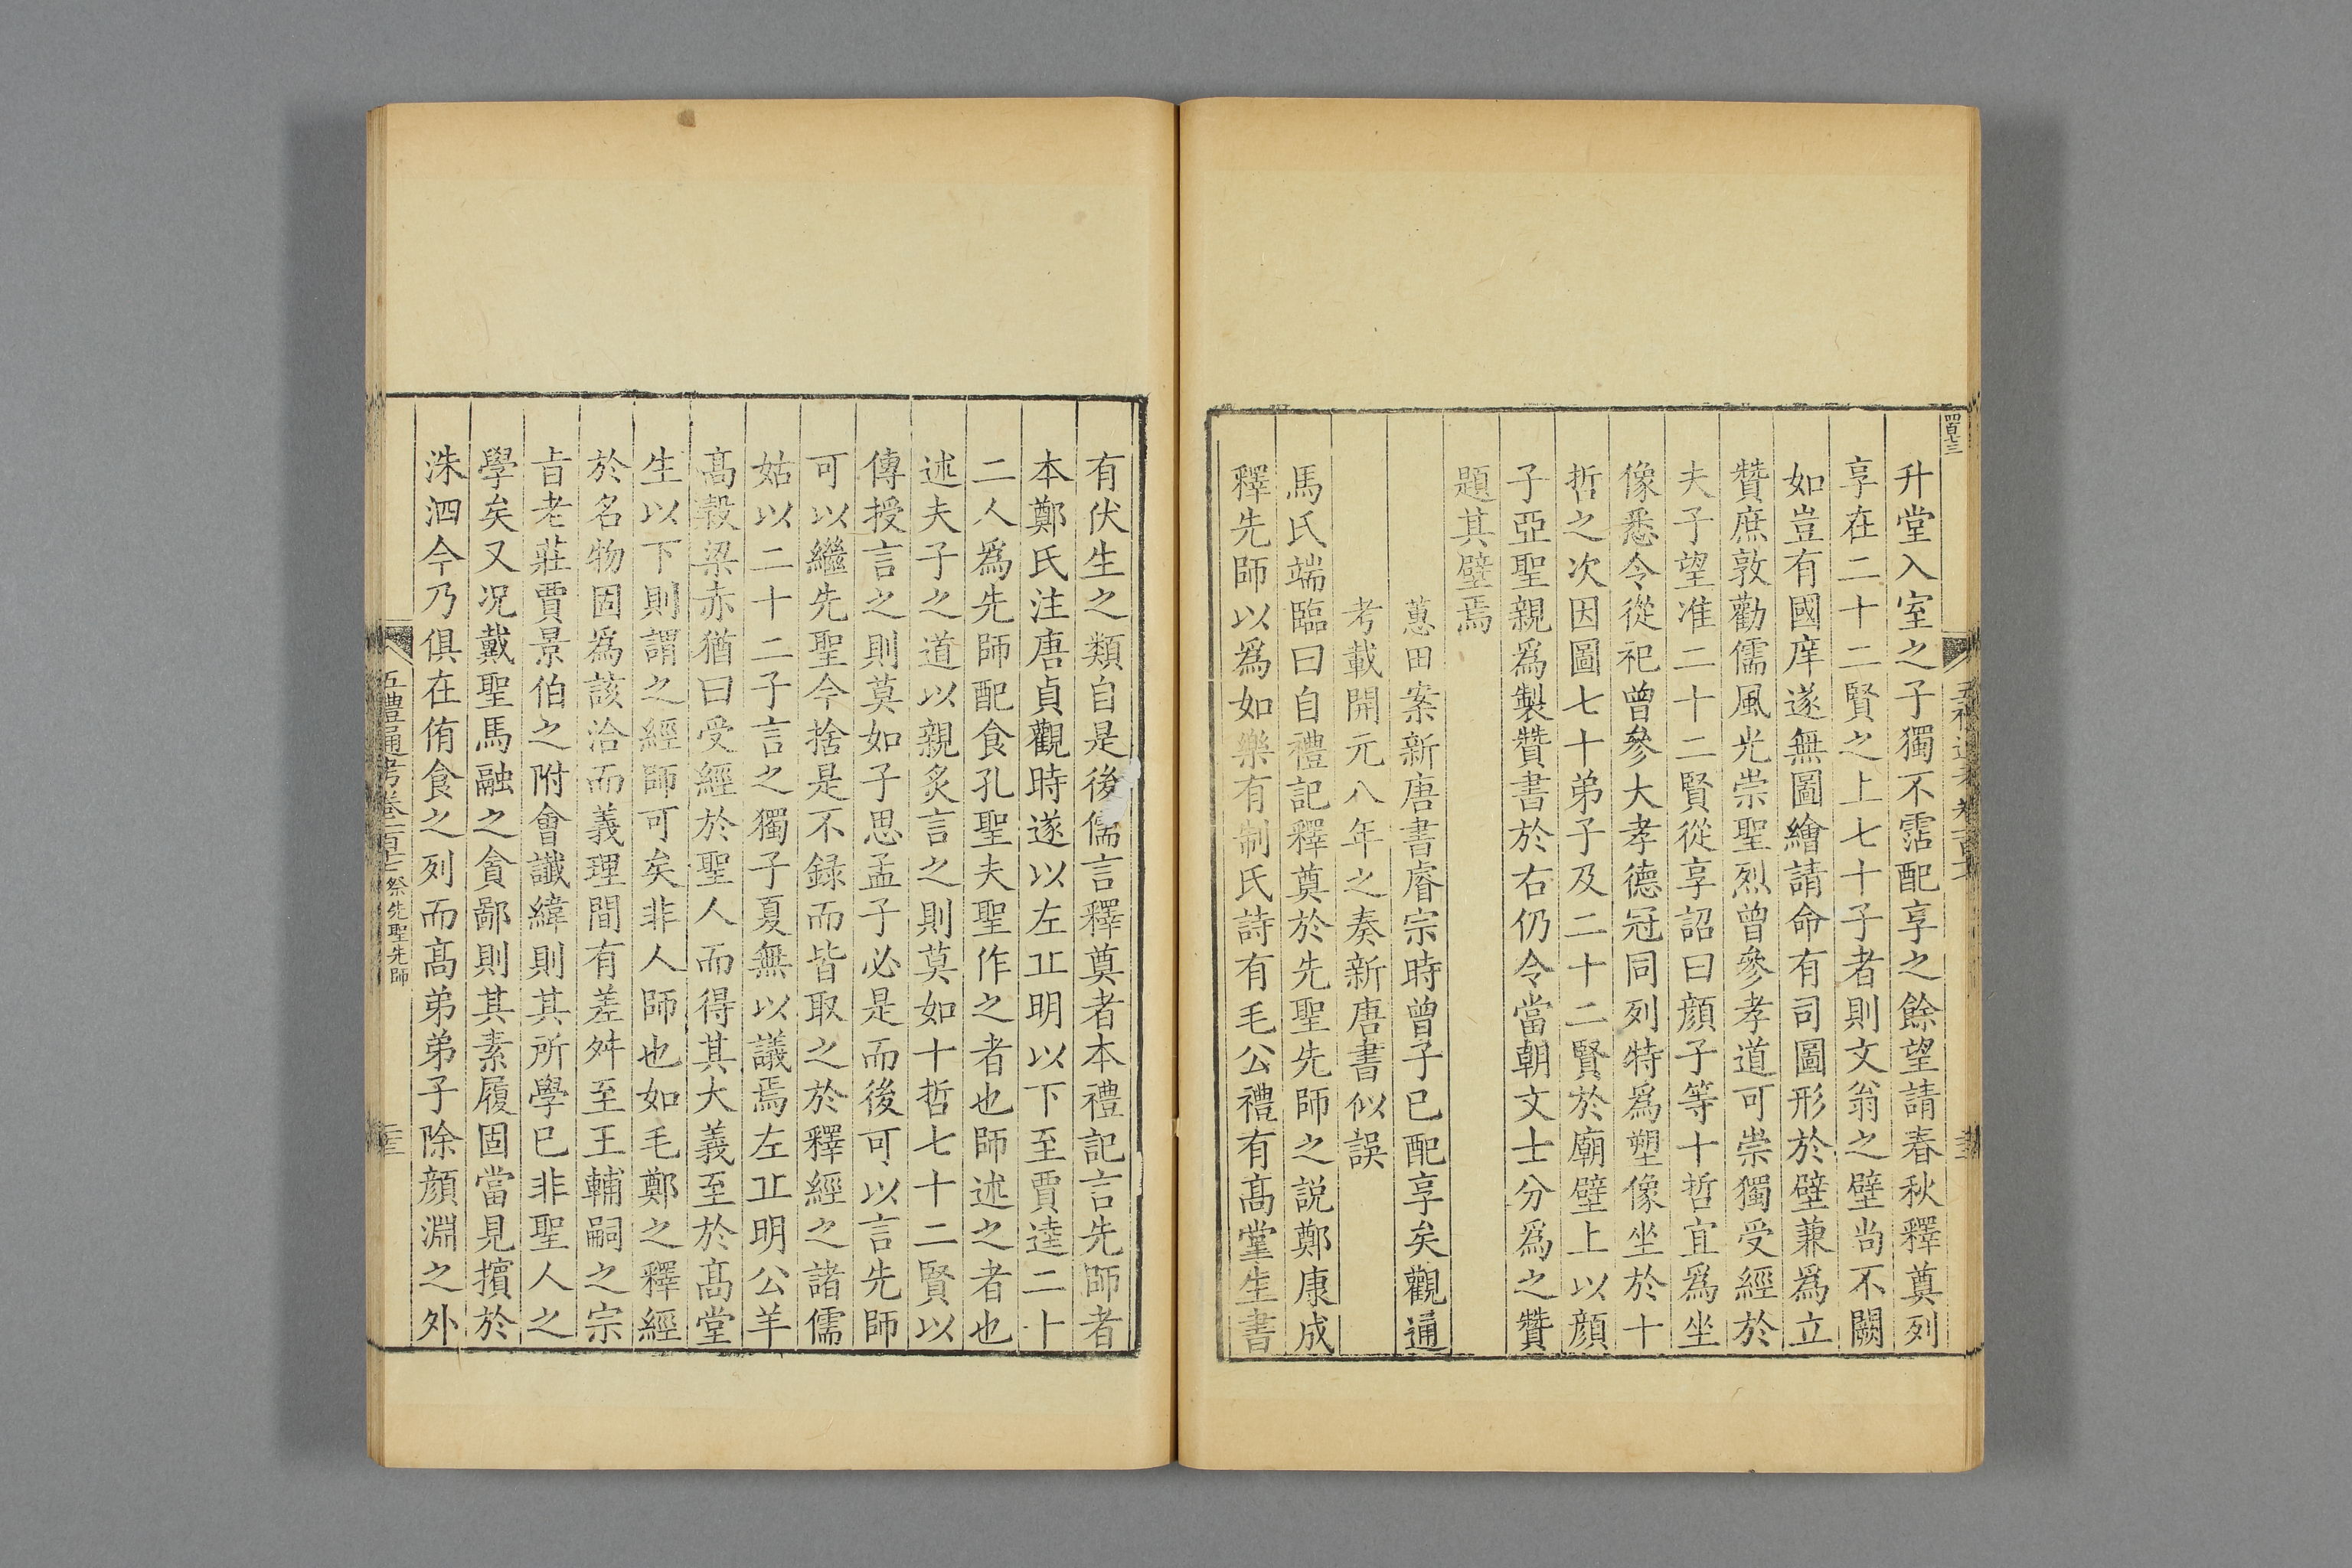 四百七三
升堂入室之子獨不霑配享之餘望請春秋釋奠列
享在二十二賢之上七十子者則文翁之壁尚不闕
如豈有國庠遂無圖繪請命有司圖形於壁兼爲立
贊庶敦勸儒風光崇聖烈曾參孝道可崇獨受經於
夫子望准二十二賢從享詔曰顔子等十哲宜爲坐
像悉令從祀曾參大孝德冠同列特爲塑像坐於十
哲之次因圖七十弟子及二十二賢於廟壁上以顔
子亞聖親爲製贊書於右仍令當朝文士分爲之贊
題其壁焉
蕙田案新唐書睿宗時曾子已配享矣觀通
考載開元八年之奏新唐書似誤
馬氏端臨曰自禮記釋奠於先聖先師之説鄭康成
釋先師以爲如樂有制氏詩有毛公禮有髙堂生書
有伏生之類自是後儒言釋奠者本禮記言先師者
本鄭氏注唐貞觀時遂以左丘明以下至賈逵二十
二人爲先師配食孔聖夫聖作之者也師述之者也
述夫子之道以親炙言之則莫如十哲七十二賢以
傳授言之則莫如子思孟子必是而後可以言先師
可以繼先聖今捨是不録而皆取之於釋經之諸儒
姑以二十二子言之獨子夏無以議焉左丘明公羊
髙穀梁赤猶曰受經於聖人而得其大義至於髙堂
生以下則謂之經師可矣非人師也如毛鄭之釋經
於名物固爲該洽而義理間有差舛至王輔嗣之宗
旨老莊賈景伯之附會讖緯則其所學已非聖人之
學矣又况戴聖馬融之貪鄙則其素履固當見擯於
洙泗今乃俱在侑食之列而髙弟弟子除顔淵之外
五禮通考卷一百十七 祭先聖先師